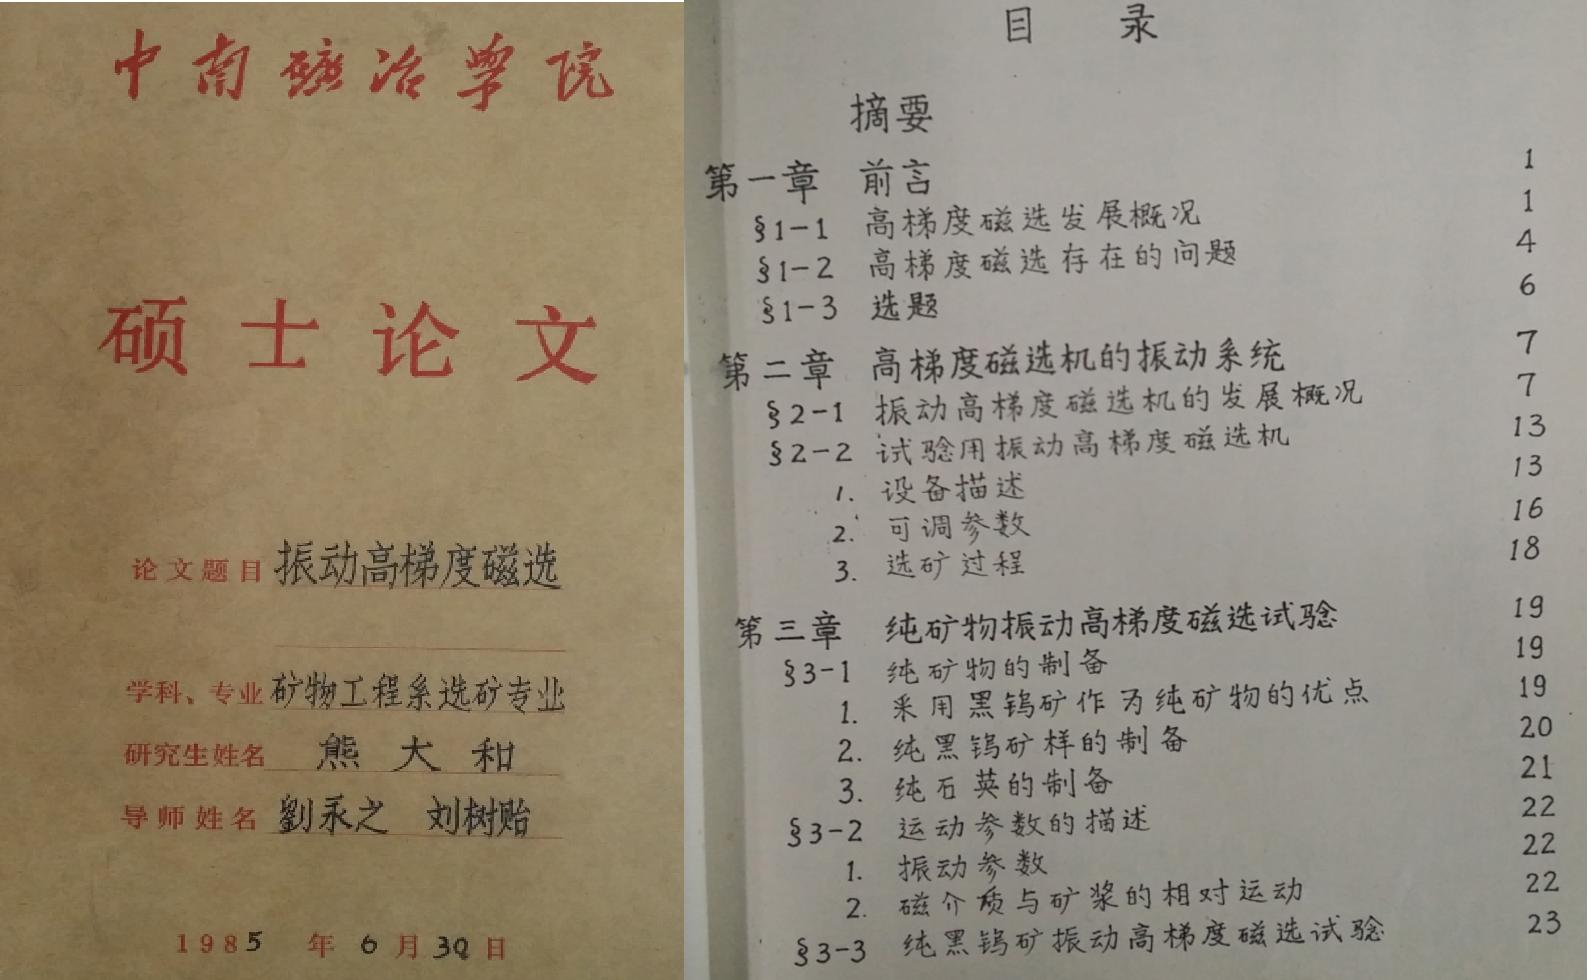 中南矿冶学院
硕士论文
论文题目 振动高梯度磁选
学科、专业 矿物工程系选矿专业
研究生姓名 熊大和
导师姓名 劉永之 刘树贻
1985年6月30日
目录
摘要
第一章 前言 1
§1-1 高梯度磁选发展概况 1
§1-2 高梯度磁选存在的问题 4
§1-3 选题 6
第二章 高梯度磁选机的振动系统 7
§2-1 振动高梯度磁选机的发展概况 7
§2-2 试验用振动高梯度磁选机 13
1. 设备描述 13
2. 可调参数 16
3. 选矿过程 18
第三章 纯矿物振动高梯度磁选试验 19
§3-1 纯矿物的制备 19
1. 采用黑钨矿作为纯矿物的优点 19
2. 纯黑钨矿样的制备 20
3. 纯石英的制备 21
§3-2 运动参数的描述 22
1. 振动参数 22
2. 磁介质与矿浆的相对运动 22
§3-3 纯黑钨矿振动高梯度磁选试验 23